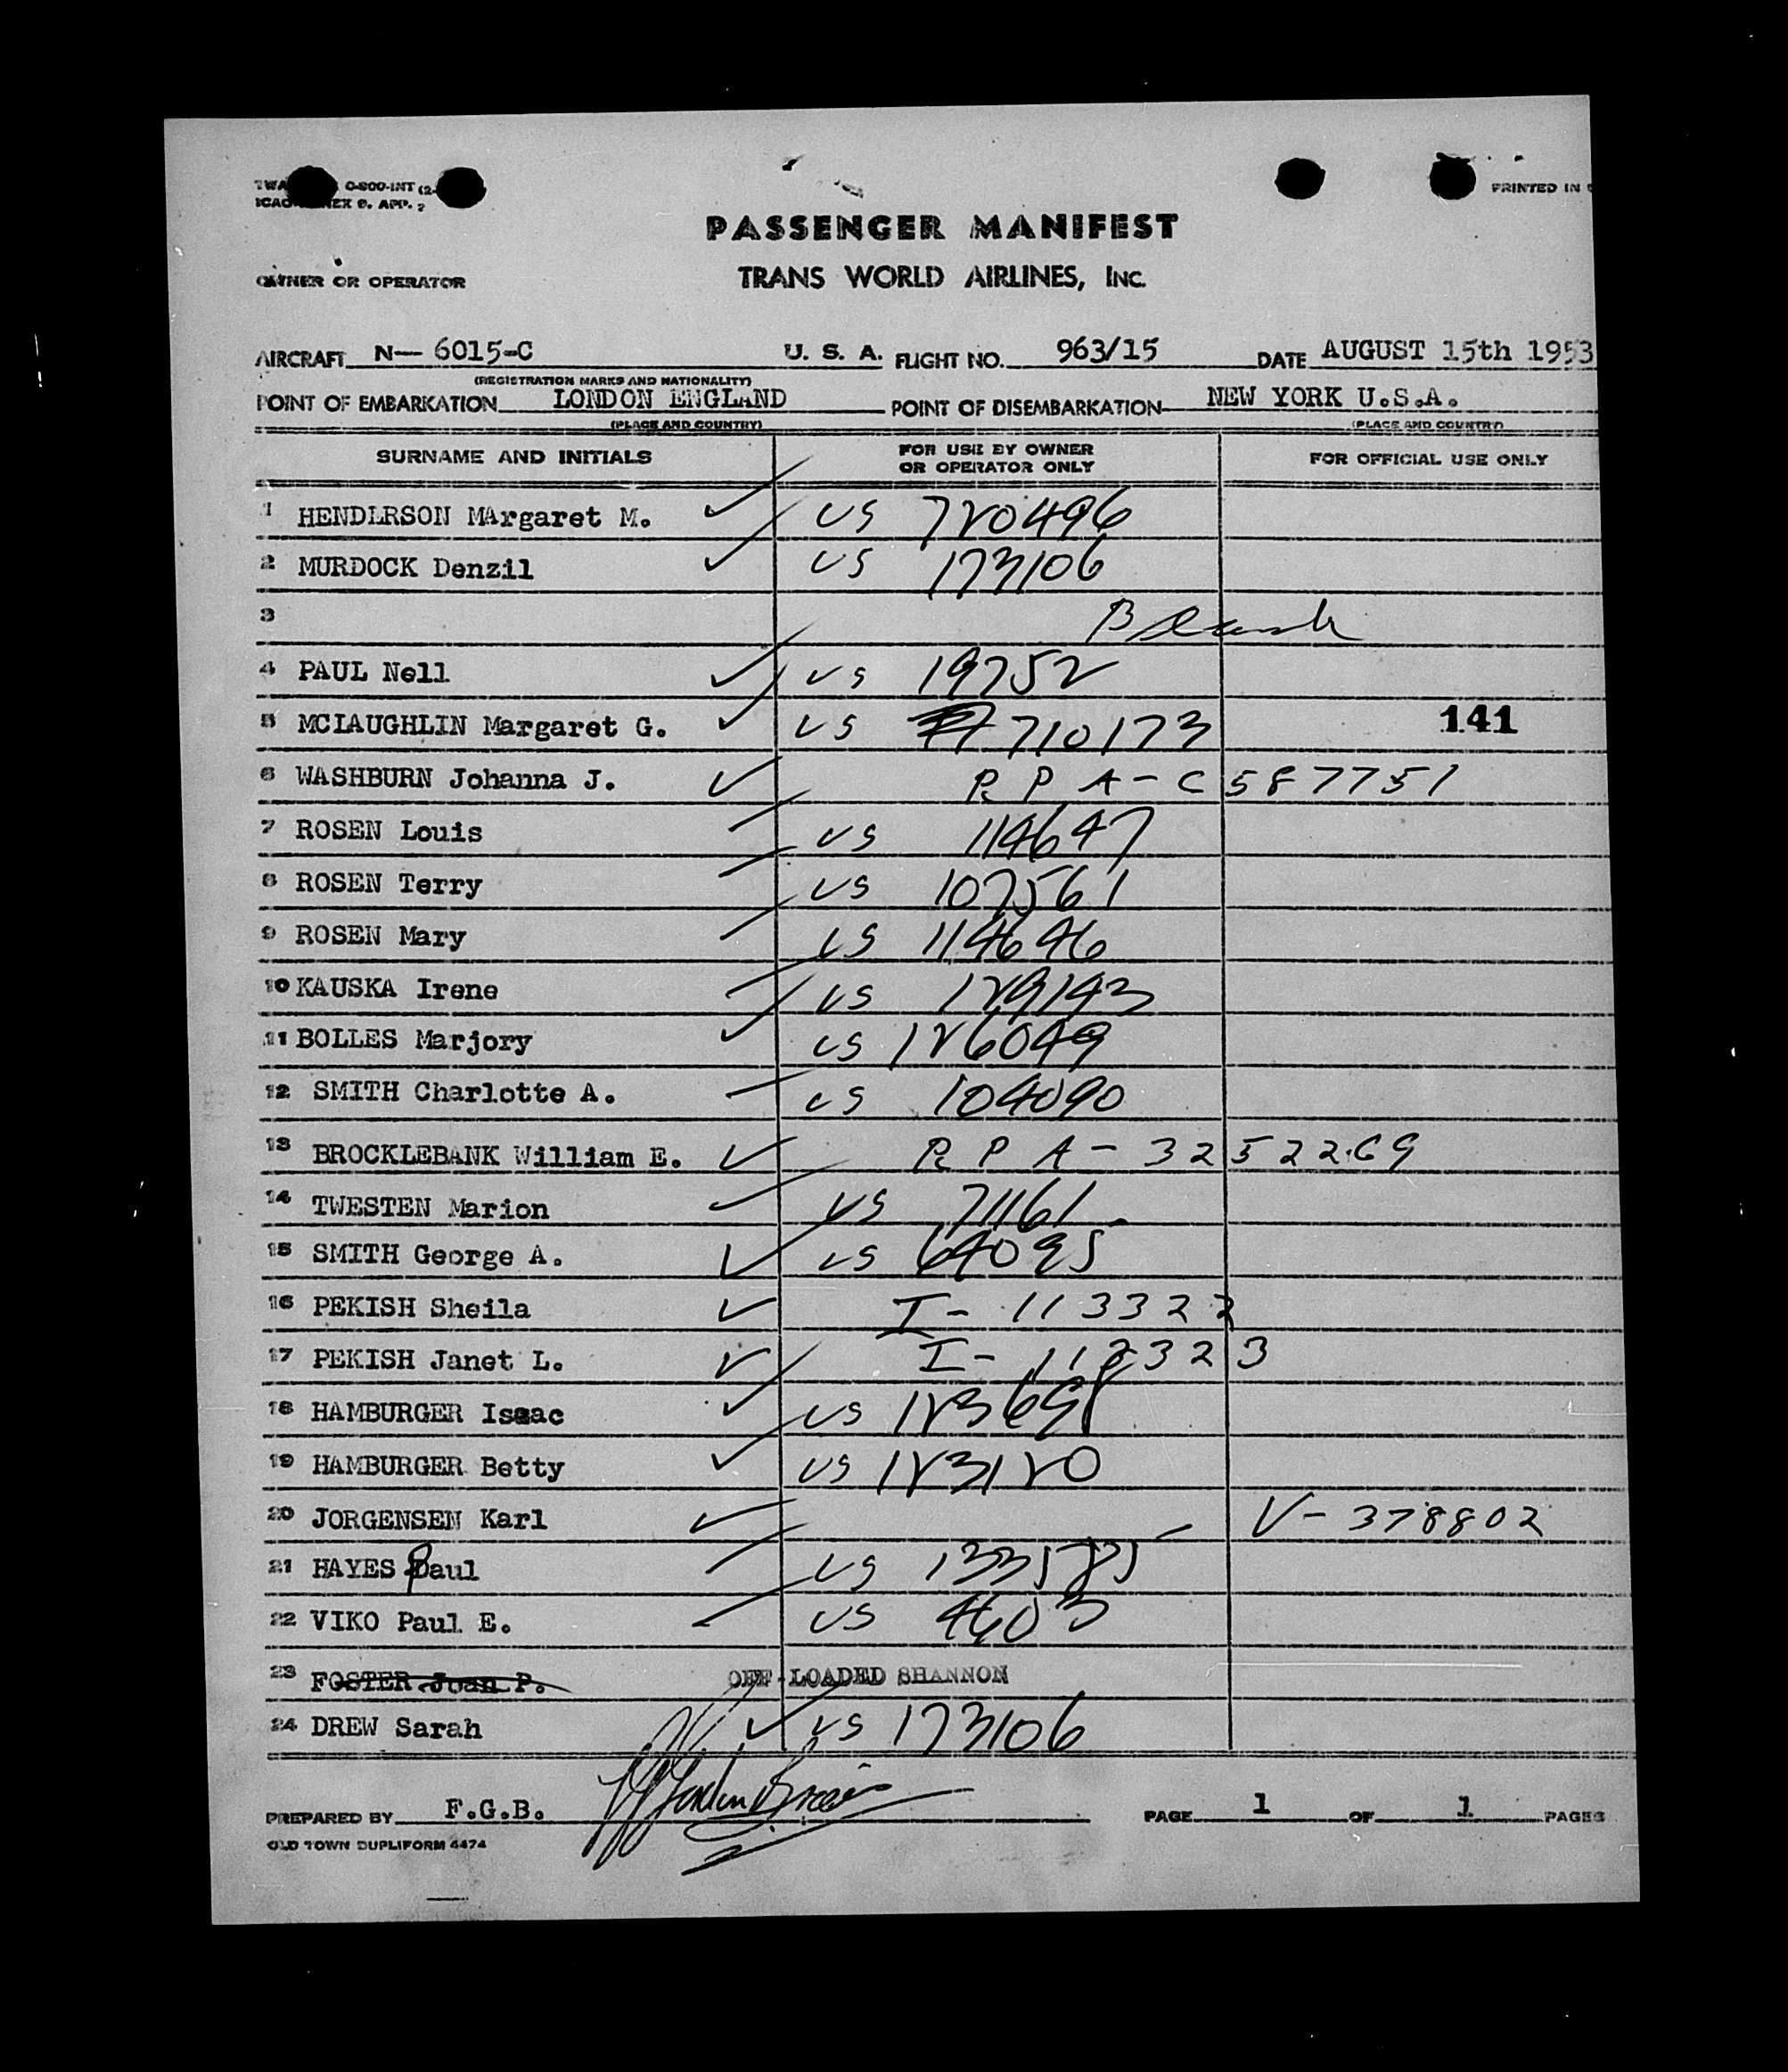 TWA O-800-INT (2-
ICAO ANNEX 9. APP. 2
PRINTED IN
PASSENGER MANIFEST
OWNER OR OPERATOR
TRANS WORLD AIRLINES, INC.
AIRCRAFT N— 6015-C U. S. A. FLIGHT NO. 963/15 DATE AUGUST 15th 1953
(REGISTRATION MARKS AND NATIONALITY)
POINT OF EMBARKATION LONDON ENGLAND POINT OF DISEMBARKATION NEW YORK U.S.A.
(PLACE AND COUNTRY) (PLACE AND COUNTRY)
SURNAME AND INITIALS FOR USE BY OWNER OR OPERATOR ONLY FOR OFFICIAL USE ONLY
1 HENDERSON MArgaret M. US 720496
2 MURDOCK Denzil US 173106
3 Blank
4 PAUL Nell US 19752
5 MCLAUGHLIN Margaret G. US 710173 141
6 WASHBURN Johanna J. R P A-C587751
7 ROSEN Louis US 114647
8 ROSEN Terry US 107561
9 ROSEN Mary US 114646
10 KAUSKA Irene US 129193
11 BOLLES Marjory US 126049
12 SMITH Charlotte A. US 104090
13 BROCKLEBANK William E. R P A-
14 TWESTEN Marion US 71161
15 SMITH George A. US 64095
16 PEKISH Sheila I- 113322
17 PEKISH Janet L. I-
18 HAMBURGER Isaac US 123698
19 HAMBURGER Betty US 123120
20 JORGENSEN Karl V- 378802
21 HAYES Paul US 133585
22 VIKO Paul E. US 4603
23 FOSTER Joan P. OFF-LOADED SHANNON
24 DREW Sarah US 173106
PREPARED BY F.G.B. PAGE 1 OF 1 PAGES
OLD TOWN DUPLIFORM 4474